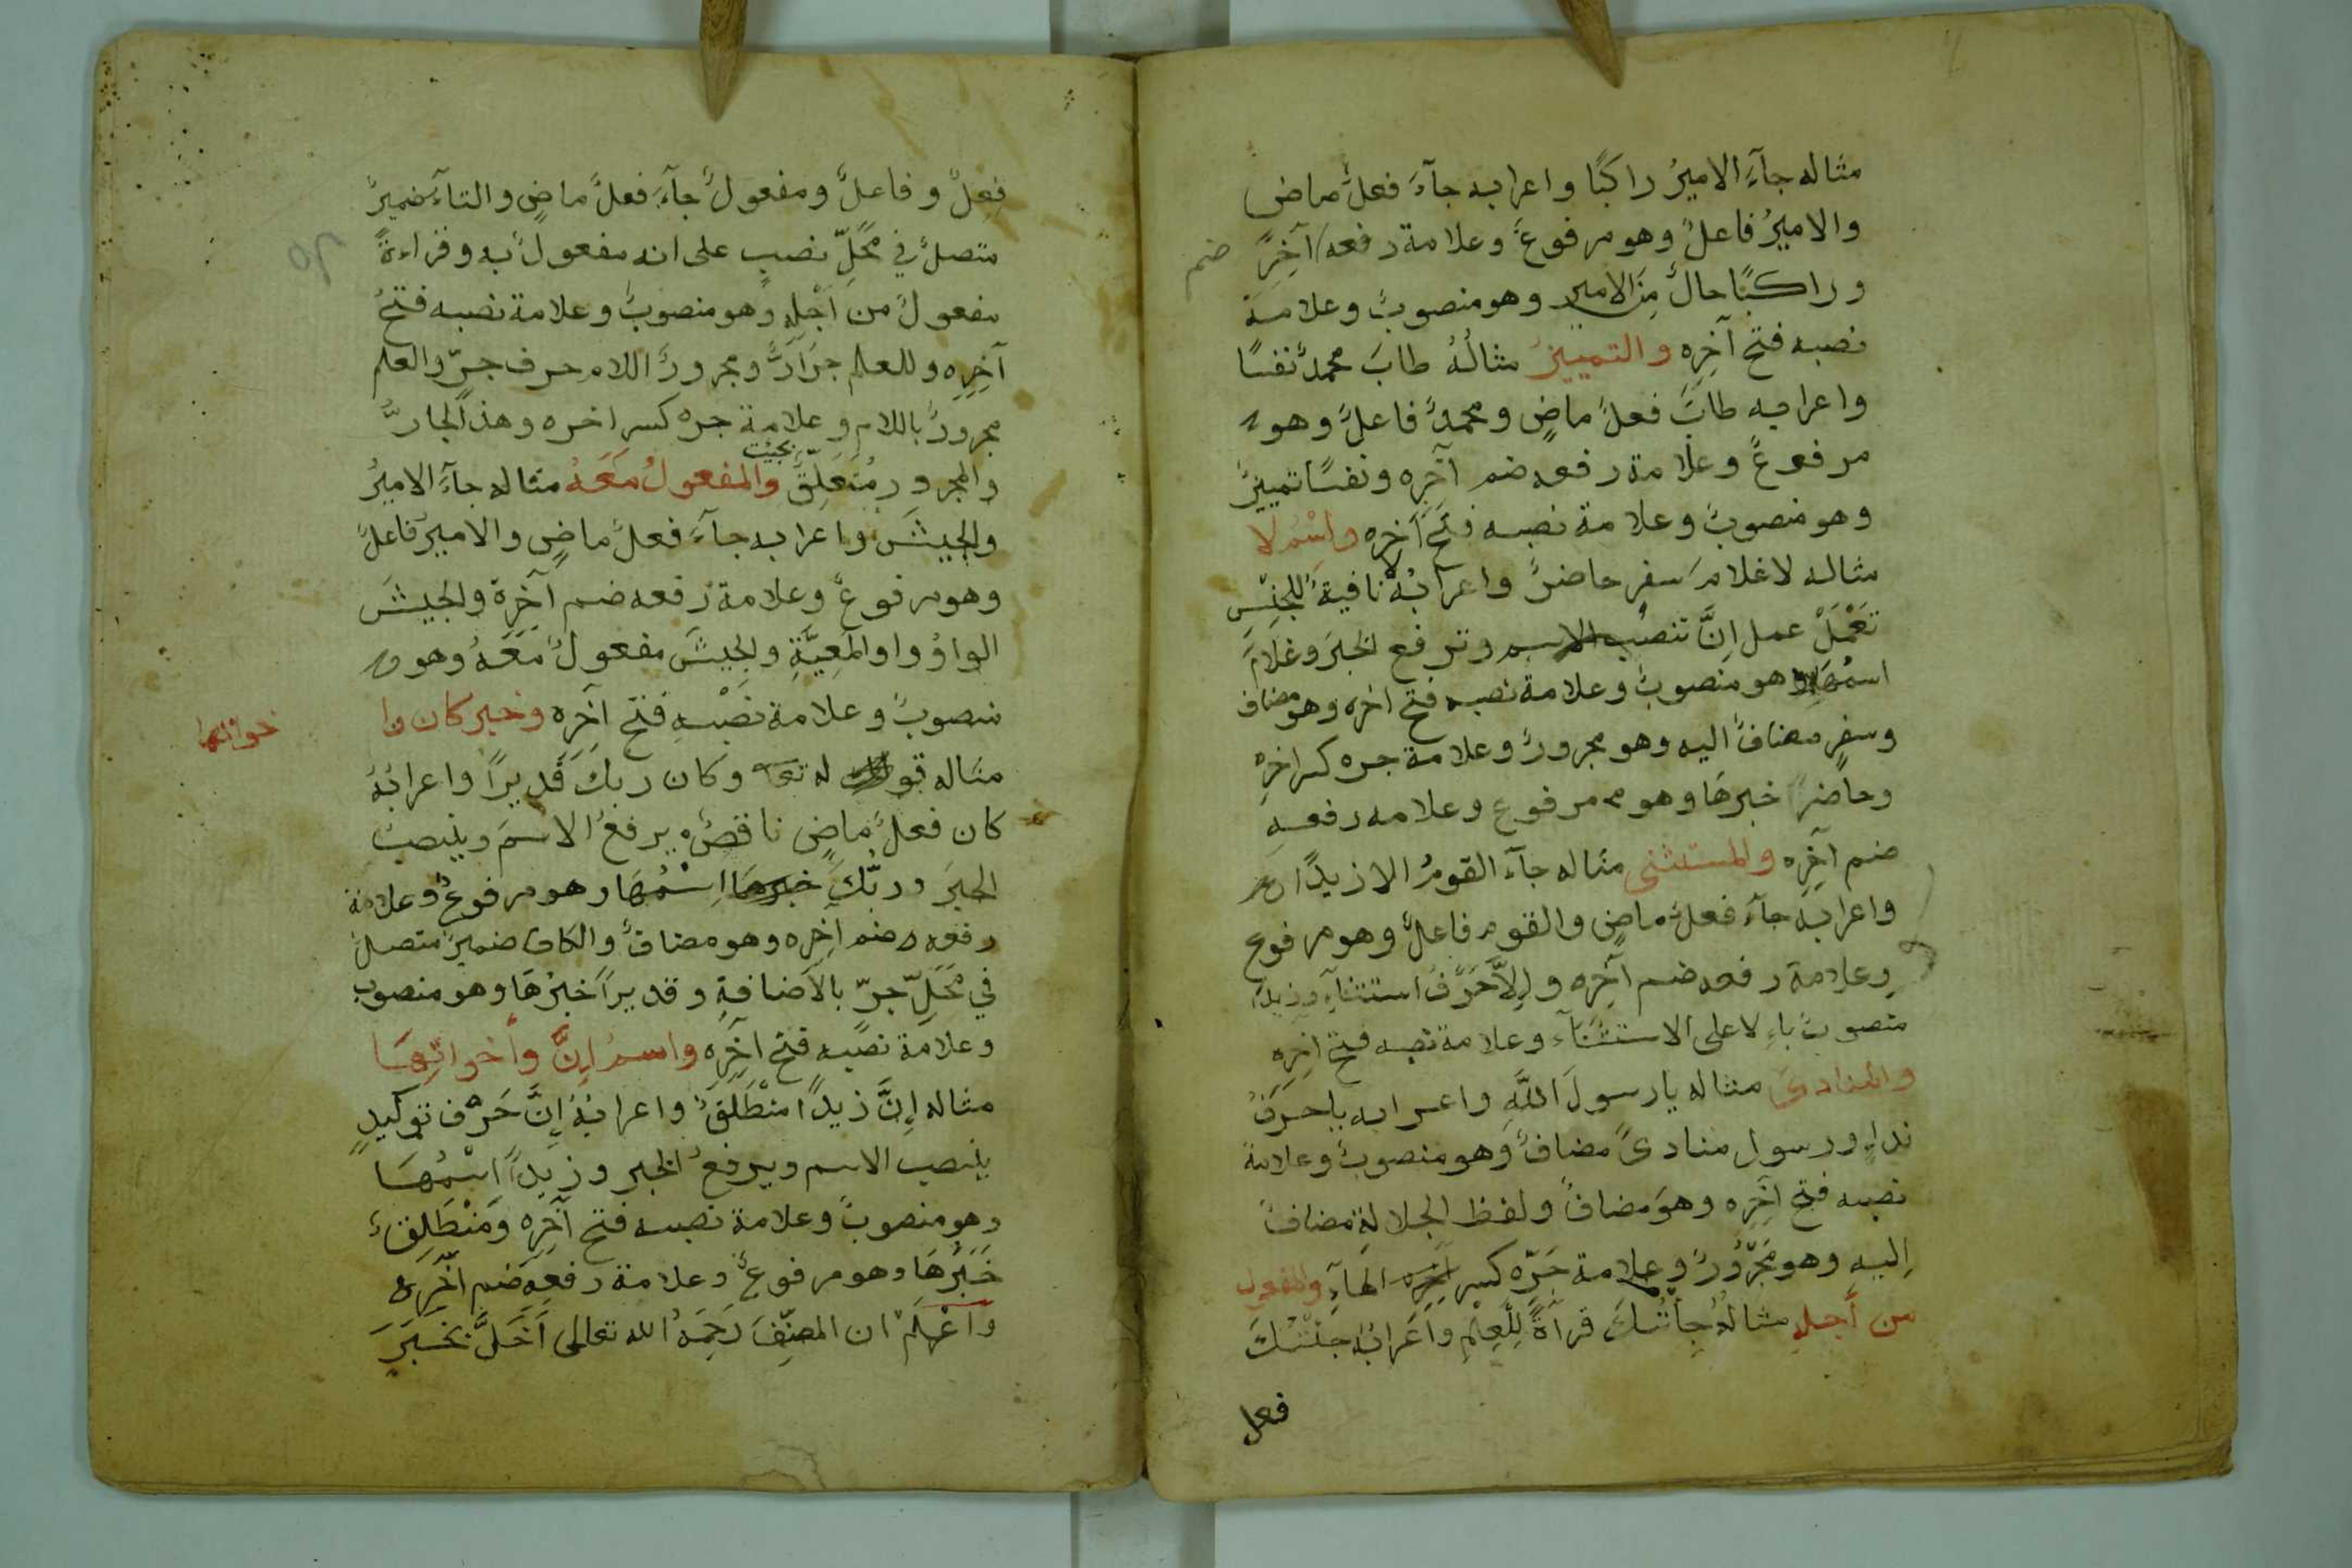 مثاله جآءَ الاميرُ راكبًا واعرابه جآءَ فعلٌ ماض
والاميرُ فاعلٌ وهو مرفوعٌ وعلامة رفعه آخِرِ
ضم
وراكبًا حالٌ مِنَ الامير وهو منصوبٌ وعلامة
نصبه فتح آخِرِه والتمييزُ مثالُهُ طابَ محمدٌ نفسًا
واعرابه طابَ فعلٌ ماضٍ ومحمدٌ فاعلٌ وهو
مرفوعٌ وعلامة رفعه ضم آخِرِه ونفسًا تمييزٌ
وهو منصوبٌ وعلامة نصبه فتح آخِرِه واسْمُ لا
مثاله لا غلامَ سفرٍ حاضرٌ واعرابُهُ لا نافيةٌ للجِنْسِ
تَعْمَلْ عمل اِنَّ تنصبُ الاسم وترفع الخبرَ وغلامَ
اسمُهَا وهو منصوبٌ وعلامة نصبه فتح اخره وهو مضاف
وسفرٍ مضافٌ اليه وهو مجرورٌ وعلامة جره كسر اخرِهْ
وحاضرٌ خبرهَا وهو مرفوع وعلامه رفعه
ضم آخِرِه والمستثنى مثاله جآءَ القومُ الا زيدًا
واعرابَه جآءَ فعلٌ ماضٍ والقوم فاعلٌ وهو مرفوع
وعلامة رفعه ضم آخِرِه واِلاَّ حَرْفُ استثنآءِ وزيدًا
منصوبٌ باءِلا على الاستثنَآء وعلامة نصبه فتح اخِرِه
والمنادىَ مثاله يا رسولَ اللَّهِ واعرابه يا حرفُ
نداءٍ ورسول منادىً مضافٌ وهو منصوبٌ وعلامة
نصبه فتح اخِرِه وهوَ مضافٌ ولفظ الجلالةِ مضافٌ
اِليهِ وهو مَجْرُورٌ وعلامة جَرِّه كسر آخِرِه الهآءِ والمفعول
من أجلهِ مثالهُ جِأْتُكَ قرآةً لِلْعِلْمِ واَعَرابُهُ جِئْتُكَ
فعل
فعلٌ وفاعلٌ ومفعولٌ جآءَ فعلٌ ماضٍ والتآءُ ضميرٌ
متصلٌ في مَحَلِّ نصبٍ على انه مفعولٌ به وقراءةً
مفعولٌ من اَجْلِهِ وهو منصوبٌ وعلامة نصبه فتحُ
آخِرِه وللعلم جَارٌّ ومجرورٌ اللام حرف جرّ والعلم
مجرورٌ باللام وعلامة جره كسر اخره وهذ الجارُّ
والمجرور مُتَعَلِّقٌ بجئت والمفعولُ مَعَهُ مثاله جآءَ الاميرُ
والجيشَ واعرابه جآءَ فعلٌ ماضٍ والاميرُ فاعلٌ
وهو مرفوعٌ وعلامة رفعه ضم آخِرِه والجيشَ
الواوُ واو المَعِيَّةِ والجيشَ مفعولٌ مَعَهُ وهو
منصوبٌ وعلامة نَصْبِهِ فتح آخِرِه وخبر كان وا
خواتها
مثاله قو له تعـ وكان ربكَ قَديرًا واعرابُهُ
كان فعلٌ ماضٍ ناقصٌ يرفعُ الاسمَ وينصبُ
الخبرَ وربُّكَ خبرها اِسْمُهَا وهو مرفوعٌ وعلامة
رفعه ضم آخِرِه وهو مضافٌ والكاف ضميرٌ متصلٌ
في مَحَلِّ جرّ بالاَضافةِ وقديرًا خبرُهَا وهو منصوب
وعلامة نصبه فتح آخِرِه واسمُ اِنَّ وأخواتِهَا
مثاله اِنَّ زيدًا منْطَلِقٌ واعرابُهُ اِنَّ حَرْف توكيدٍ
ينصب الاسم ويرفعُ الخبر وزيدًا اسْمُهَا
وهو منصوبٌ وعلامة نصبه فتح آخِرِه وَمَنْطَلِقٌ
خَبَرُهَا وهو مرفوعٌ وعلامة رفعِه ضم آخِرِه
وَاعْلَمْ ان المصنِّفَ رَحِمَهُ الله تعالى اَخَلَّ بخبرَ